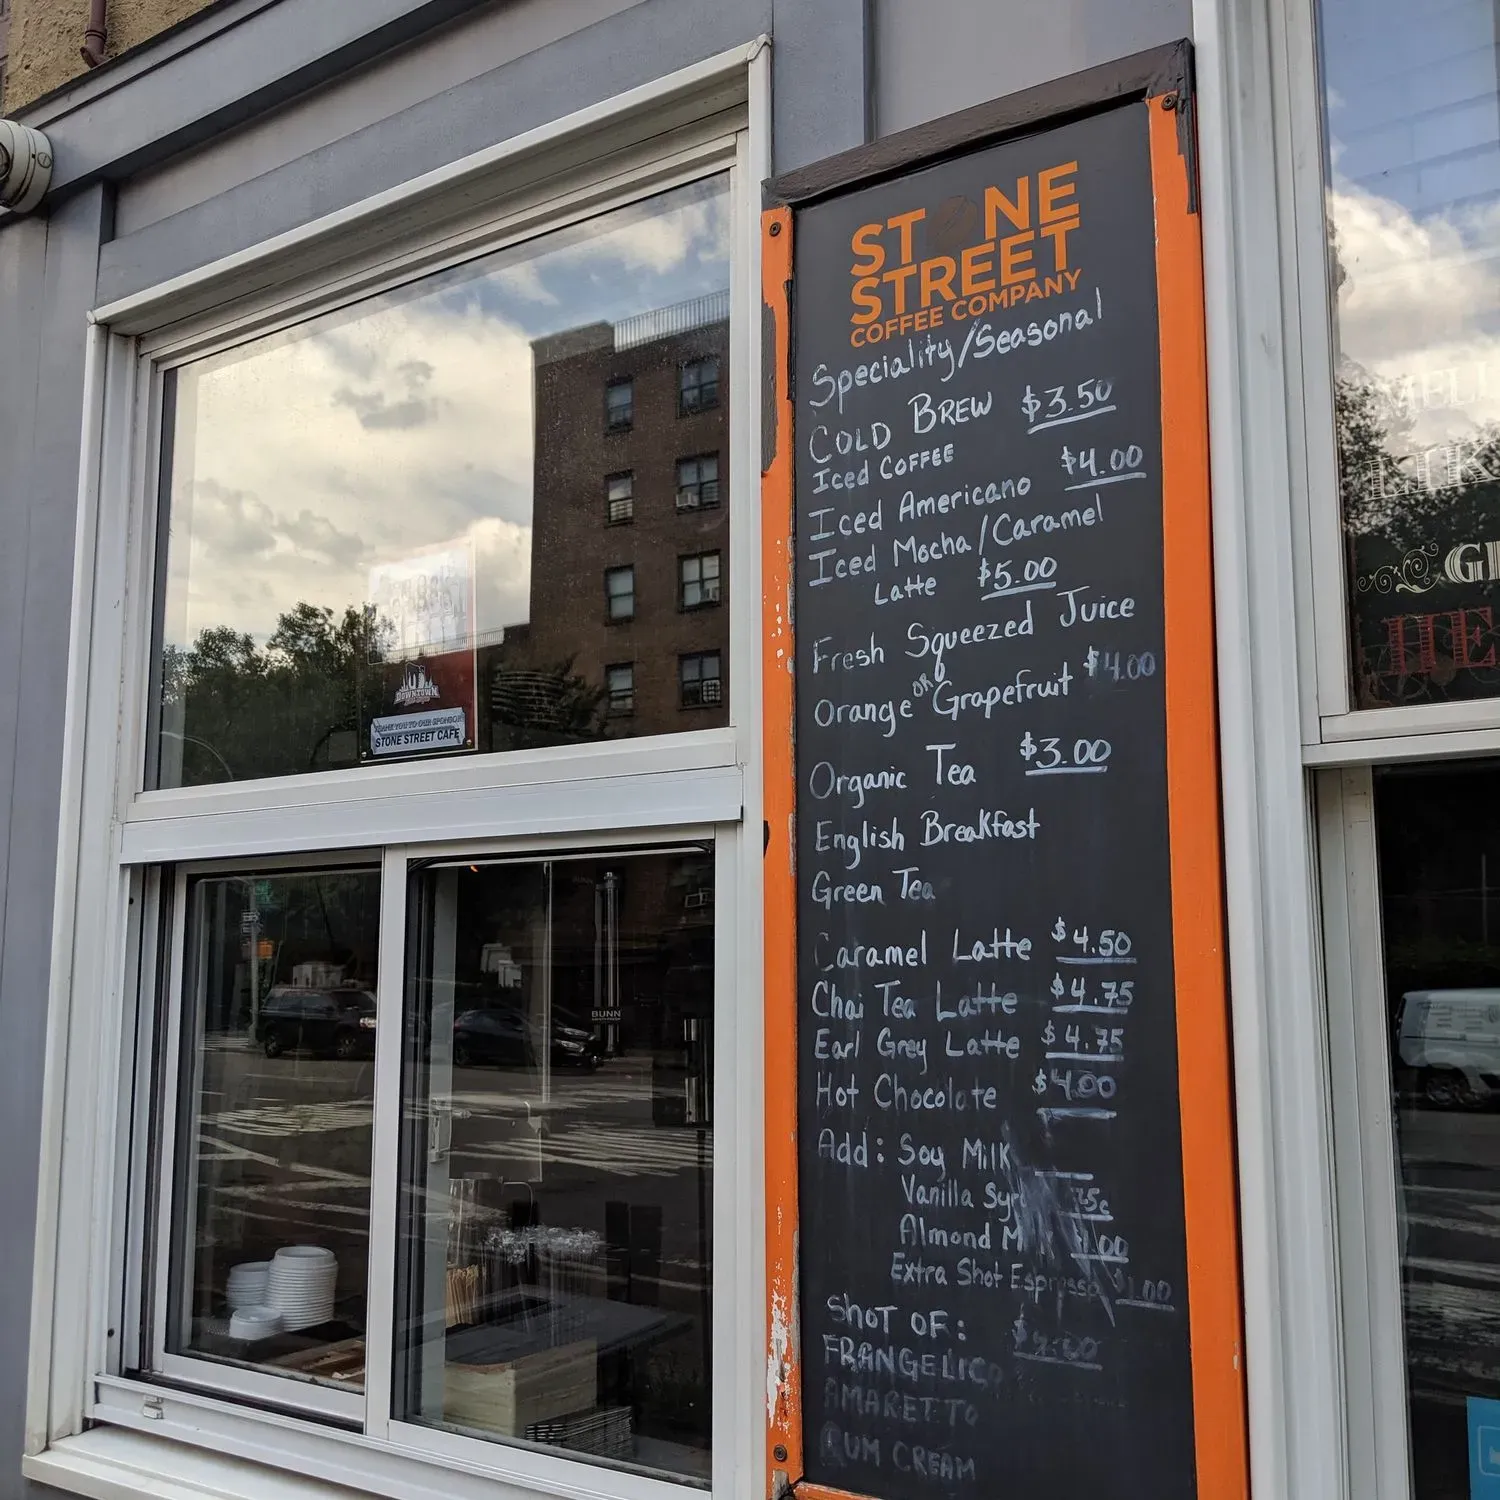 STONE
STREET
COFFEE COMPANY
Speciality/Seasonal
COLD BREW $3.50
Iced COFFEE
Iced Americano $4.00
Iced Mocha/Caramel
Latte $5.00
Fresh Squeezed Juice
Orange OR Grapefruit $4.00
Organic Tea $3.00
English Breakfast
Green Tea
Caramel Latte $4.50
Chai Tea Latte $4.75
Earl Grey Latte $4.75
Hot Chocolate $4.00
Add: Soy Milk
Vanilla
Almond
Extra Shot Espresso $1.00
SHOT OF:
FRANGELICO
AMARETTO
RUM CREAM
DOWNTOWN
THANK YOU TO OUR SPONSOR
STONE STREET CAFE
BUNN